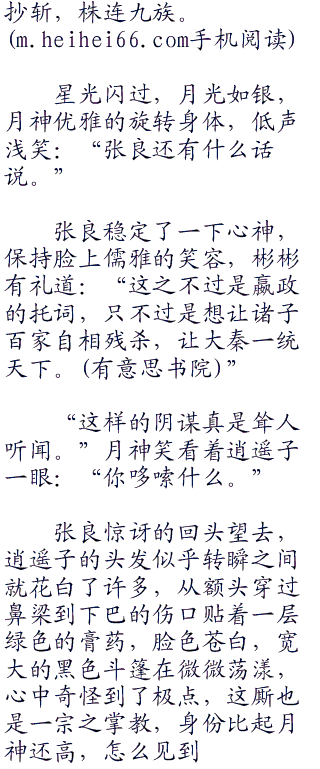 抄斩，株连九族。
(m.heihei66.com手机阅读)
星光闪过，月光如银，
月神优雅的旋转身体，低声
浅笑：“张良还有什么话
说。”
张良稳定了一下心神，
保持脸上儒雅的笑容，彬彬
有礼道：“这之不过是嬴政
的托词，只不过是想让诸子
百家自相残杀，让大秦一统
天下。(有意思书院)”
“这样的阴谋真是耸人
听闻。”月神笑看着逍遥子
一眼：“你哆嗦什么。”
张良惊讶的回头望去，
逍遥子的头发似乎转瞬之间
就花白了许多，从额头穿过
鼻梁到下巴的伤口贴着一层
绿色的膏药，脸色苍白，宽
大的黑色斗篷在微微荡漾，
心中奇怪到了极点，这厮也
是一宗之掌教，身份比起月
神还高，怎么见到